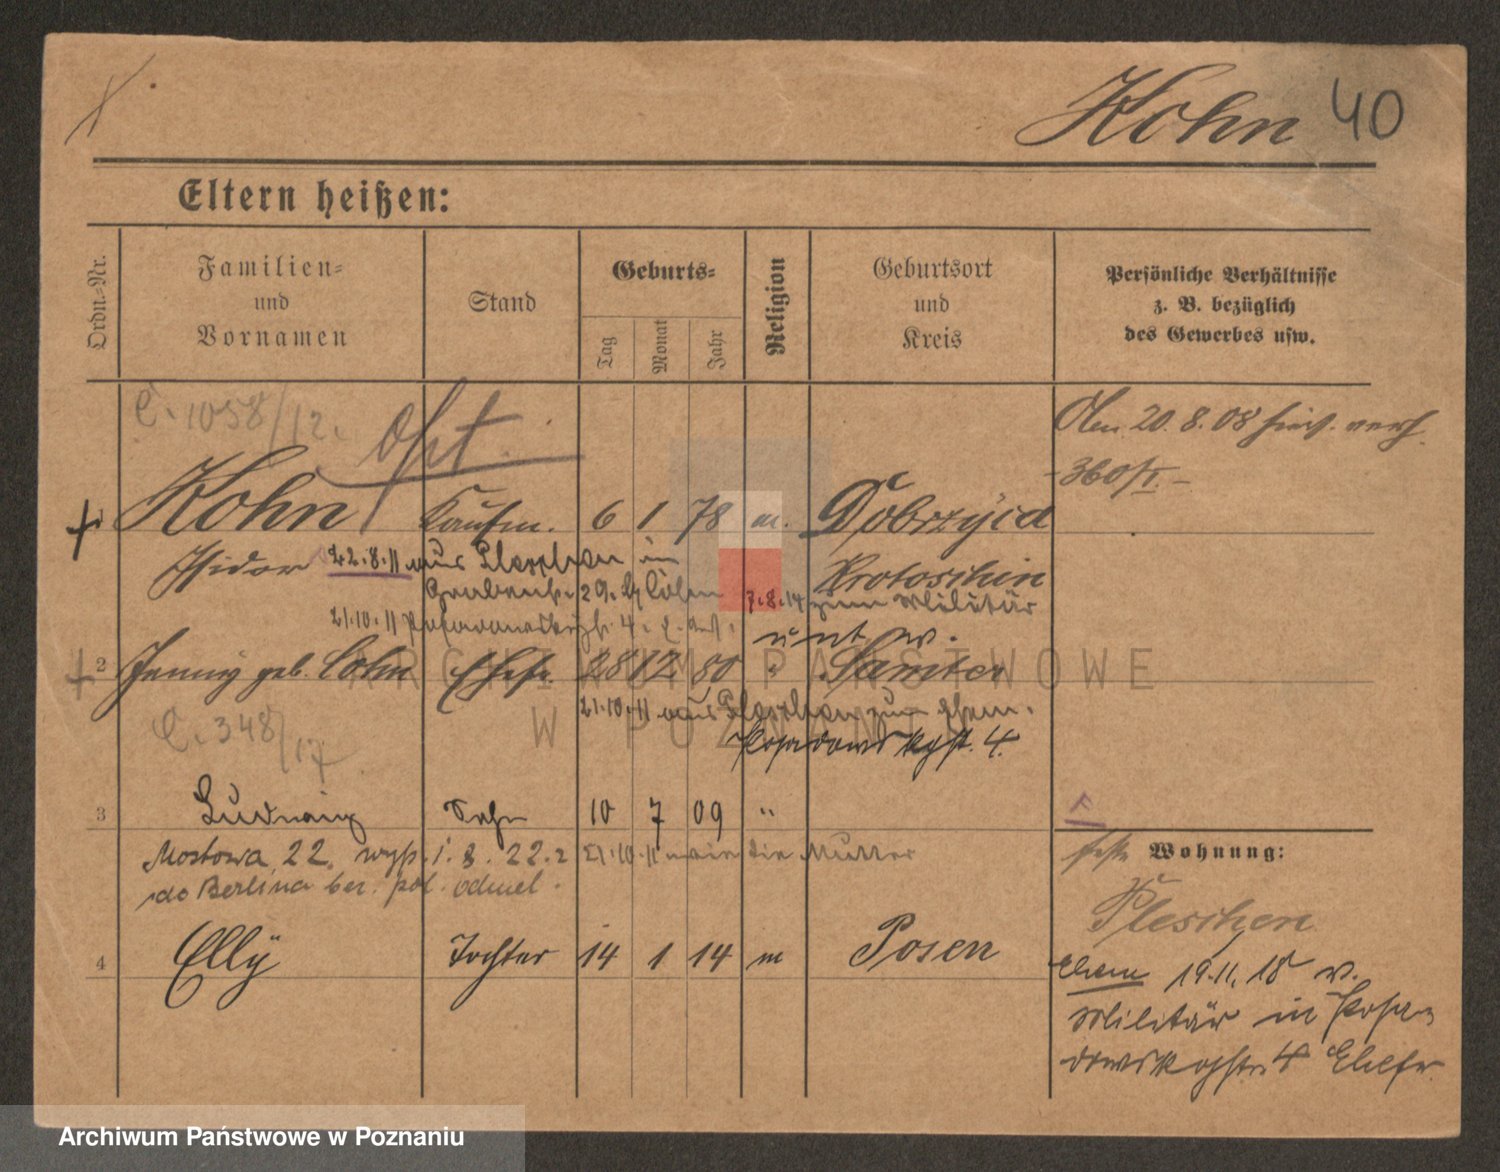 Kohn 40
Eltern heißen:
Ordn.-Nr.
Familien-
und
Vornamen
Stand
Geburts-
Tag
Monat
Jahr
Religion
Geburtsort
und
Kreis
Persönliche Verhältnisse
z. B. bezüglich
des Gewerbes usw.
C. 1058/12.
Opt.
20. 8. 08
360/I
1 Kohn Kaufm. 6 1 78 m. Dobrzyca
Isidor 22.8.11 aus Pleschen in
Krotoschin
29. Cohn 7.8.14 zum Militär
21.10.11 4.
2 Jenny geb. Cohn Ehefr. 28 12 80 " Samter
21.10.11 aus Pleschen zum Ehem.
C. 348/17
Posadowskystr. 4.
3 Ludwig Sohn 10 7 09 "
Mostowa 22. wyp. 1. 8. 22. 21.10.11 wie die Mutter
do Berlina bez. pol. odmel.
Wohnung:
Pleschen
4 Elly Tochter 14 1 14 m Posen
Ehem 19.11.18 v.
Militär in Posa-
dowskystr. 4 Ehefr.
ARCHIWUM PAŃSTWOWE
W POZNANIU
Archiwum Państwowe w Poznaniu